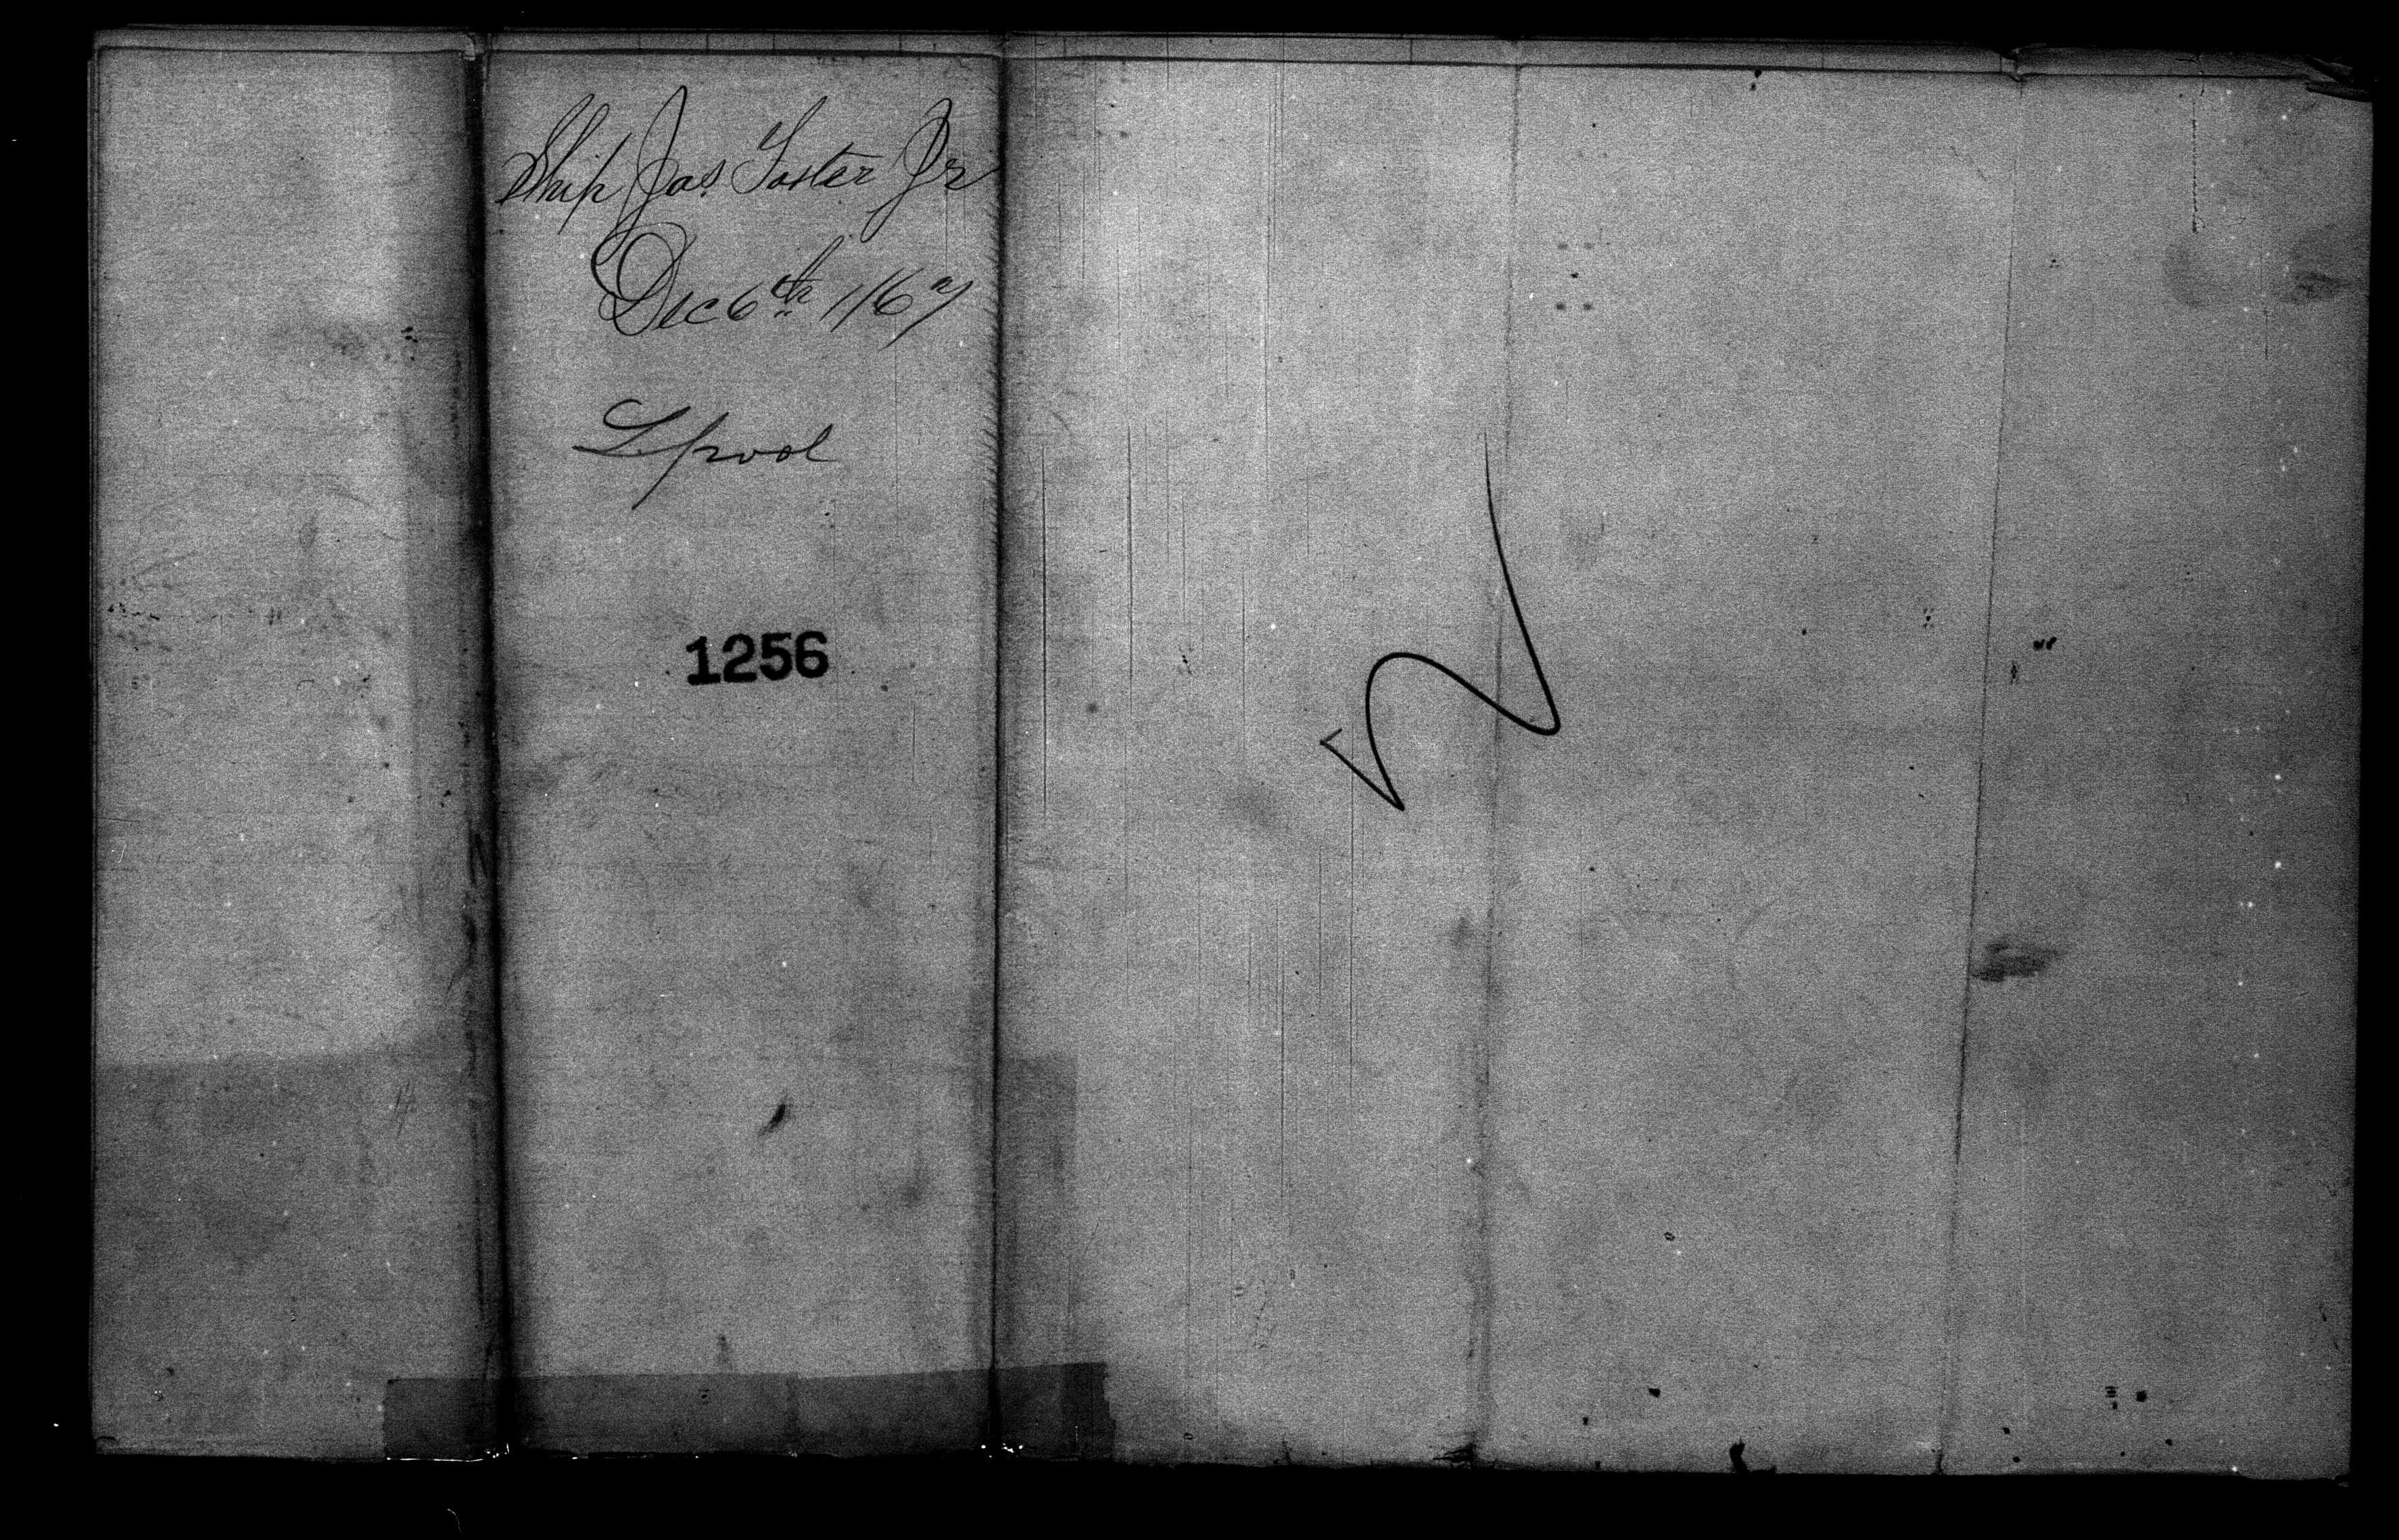 Ship Jas Foster Jr
Dec 6th 1867
Lpool
1256